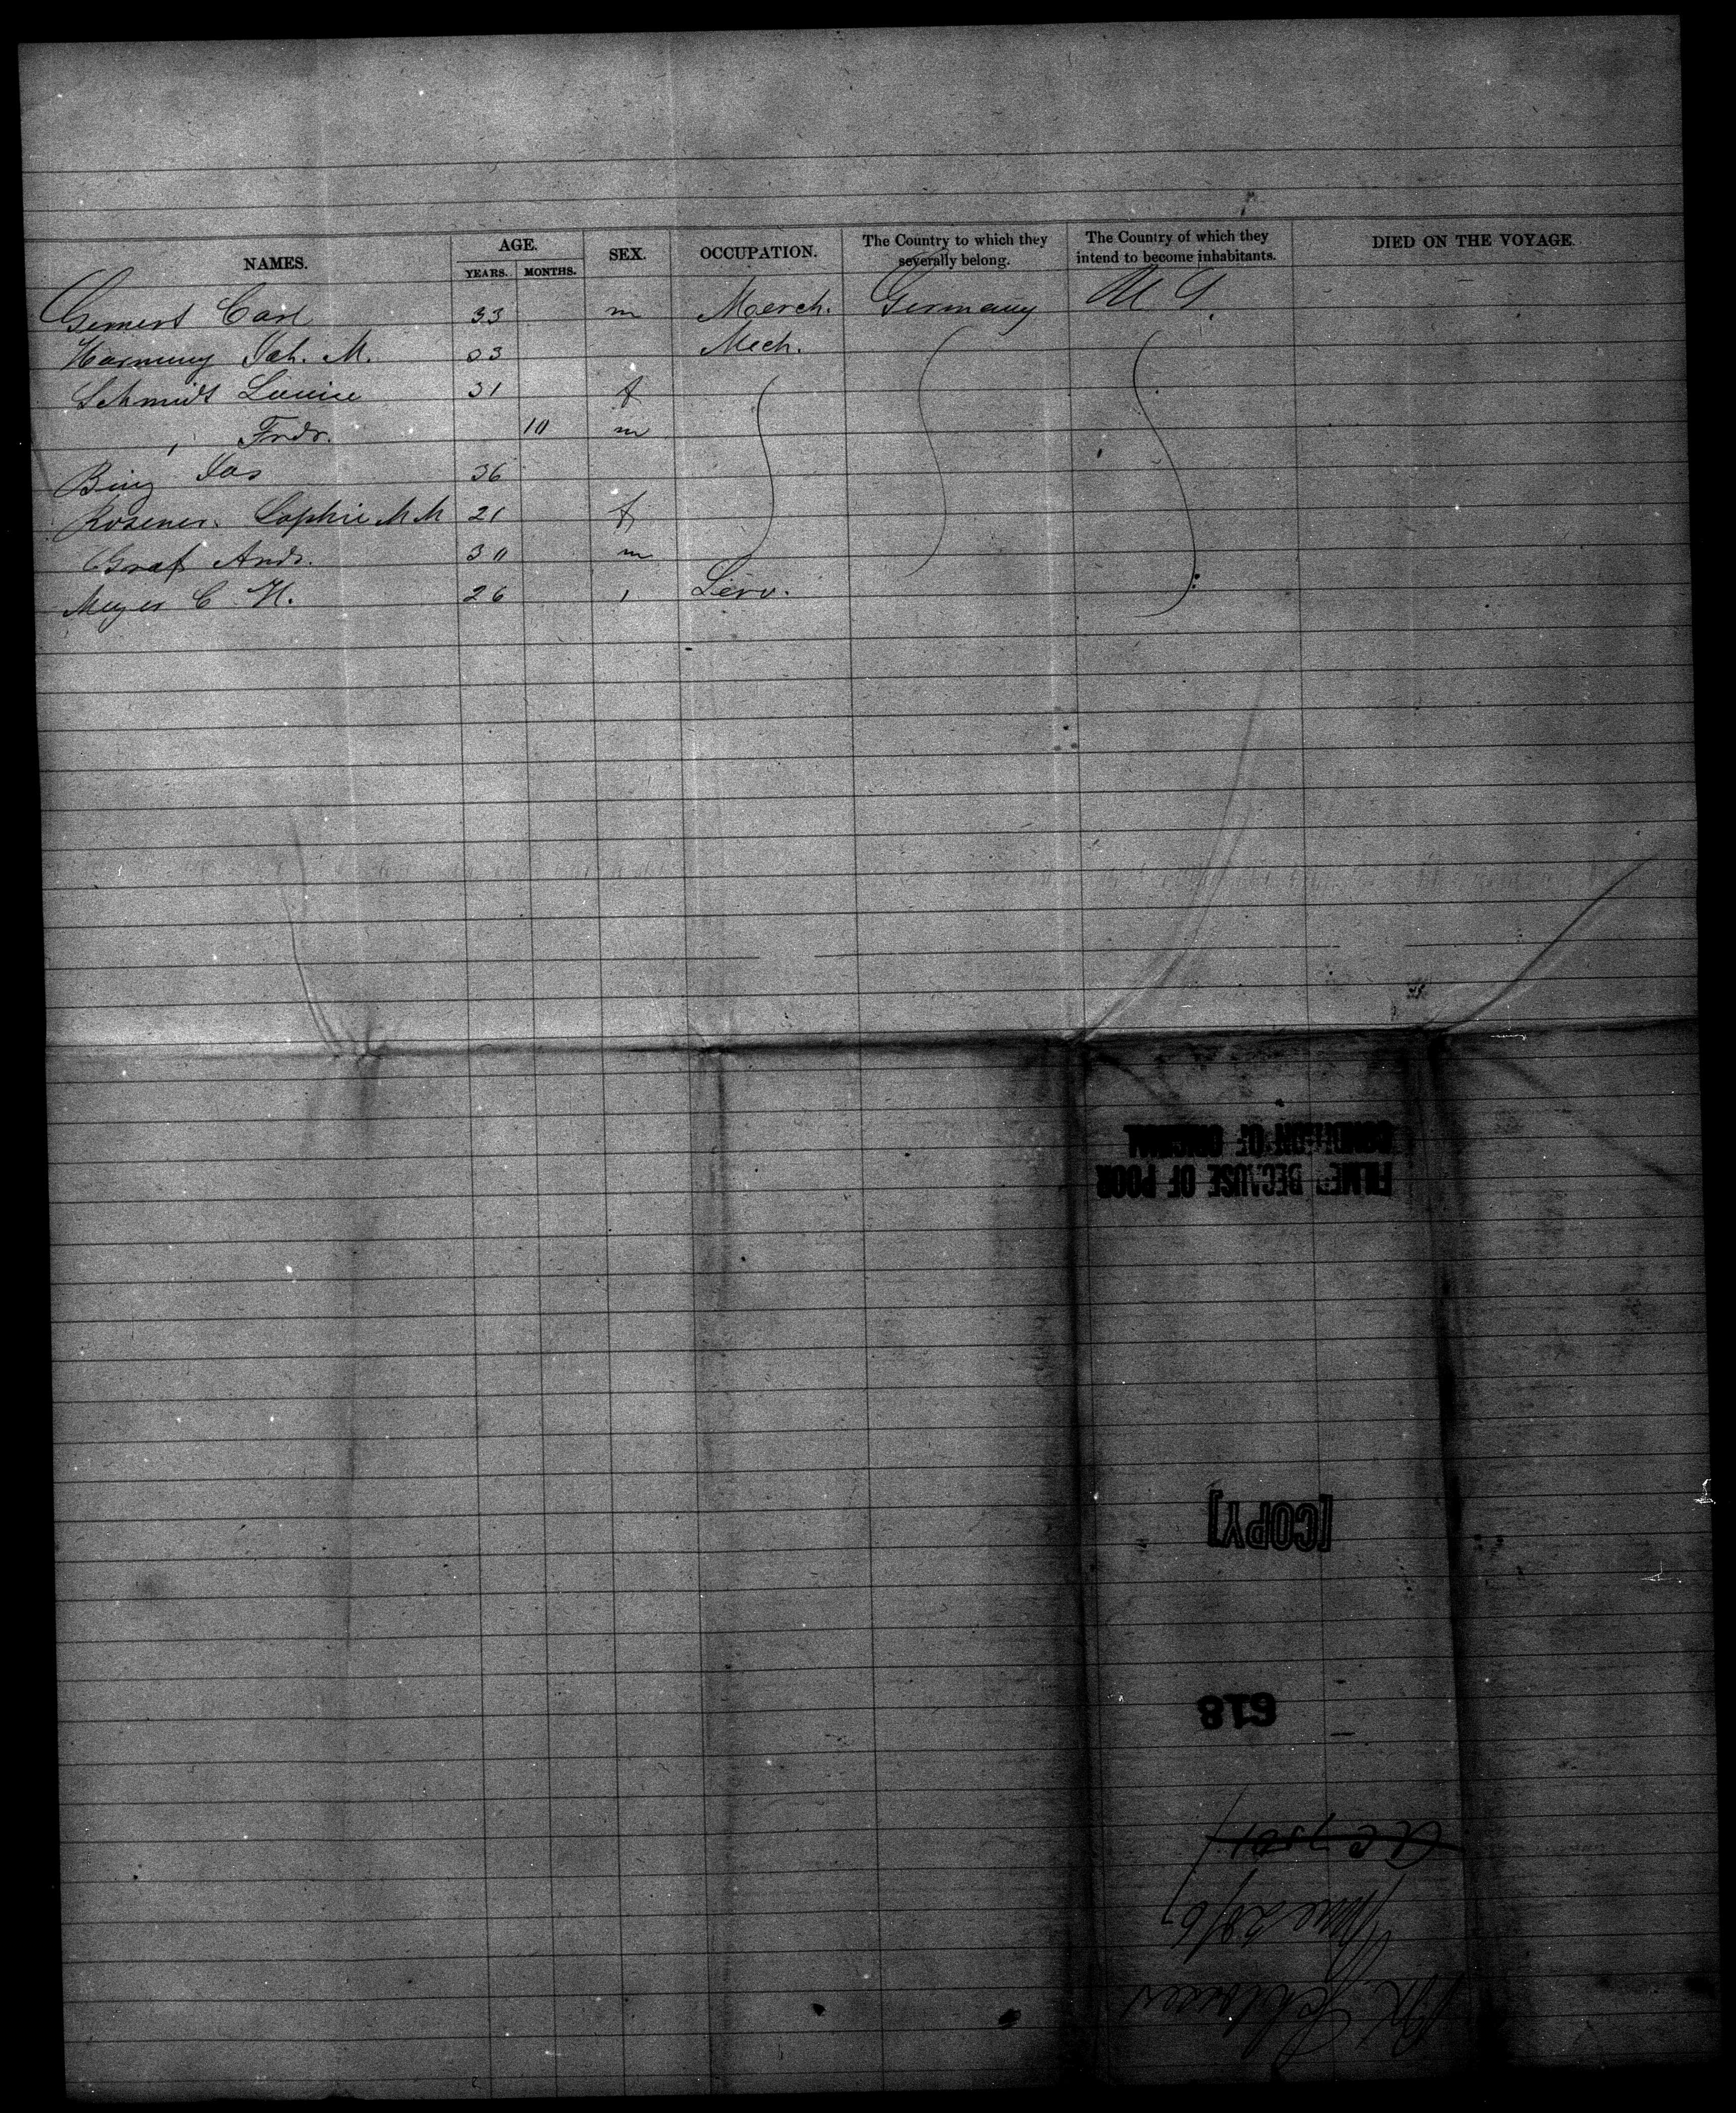 NAMES. AGE. YEARS. MONTHS. SEX. OCCUPATION. The Country to which they severally belong. The Country of which they intend to become inhabitants. DIED ON THE VOYAGE.
Carl 33 m Merch. Germany U S.
Joh. M. 33 Mech.
Schmidt Louise 31 f
" Frdr. 10 m
Bing Jas 36
Rosener. Sophie M M 21 f
Graf Andr. 30 m
Meyer C. H. 26 " Serv.
FILMED BECAUSE OF POOR
CONDITION OF ORIGINAL
[COPY]
618
June 28/67